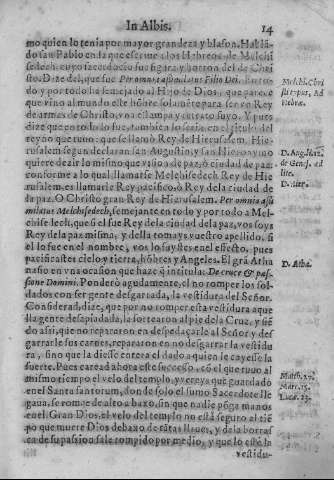 In Albis. 14
mo quien lo tenia por mayor grandeza y blason. Hablã-
do san Pablo en la que escriue a los Hebreos de Melchi-
sedech, cuyo sacerdocio fue figura y borron del de Chri-
sto. Dize del, que fue Per omnia assimilatus Filio Dei. En to-
do y por todo semejado al Hijo de Dios, que parece
que vino al mundo este hõbre solamẽte para ser vn Rey
de armas de Christo, vna estampa y retrato suyo. Y pues
dize que en todo lo fue, tambiẽ lo seria en el titulo del
reyno que tuuo: que se llamò Rey de Hierusalem. Hie-
rusalem segun declaran san Augustin y san Hieronymo
quiere dezir lo mismo que vision de paz, ò ciudad de paz:
conforme a lo qual llamarse Melchisedech Rey de Hie
rusalem, es llamarse Rey pacifico, ò Rey de la ciudad de
la paz. O Christo gran Rey de Hierusalem. Per omnia assi
milatus Melchisedech, semejante en todo y por todo a Mel-
chisedech, que si el fue Rey de la ciudad de la paz, vos soys
Rey de la paz misma, y della tomays vuestro apellido, si
el lo fue en el nombre, vos lo soys en el efecto, pues
pacificastes cielo y tierra, hõbres y Angeles. El grã Atha
nasio en vna oracion que haze q̃ intitula: De cruce & pas-
sione Domini. Ponderò agudamente, el no romper los sol-
dados con ser gente desgarrada, la vestidura del Señor.
Considerad, dize, que por no romper esta vestidura aque
lla gente desapiadada, la sortearon al pie de la Cruz, y siẽ
do assi, que no repararon en despedaçarle al Señor y des-
garrarle sus carnes, repararon en no desgarrar la vestidu
ra, sino que la diesse entera el dado a quien le cayesse la
suerte. Pues caread ahora este sucesso, cõ el que tuuo al
mismo tiempo el velo del templo, y vereys que guardado
en el Santa santorum, donde solo el sumo Sacerdote lle
gaua, se rompe de alto a baxo, sin que nadie põga manos
en el. Gran Dios, el velo del templo no està seguro al tiẽ
po que muere Dios debaxo de tãtas llaues, y de la borras
ca de su passion sale rompido por medio, y que lo estè la
vestidu-
Melchi. Chri
sti typus, ad
Hebræ.
D. Aug. lib. 2.
de Genes. ad
lite.
D. Hier.
D. Atha.
Matth. 27.
Marc. 15.
Luca. 23.